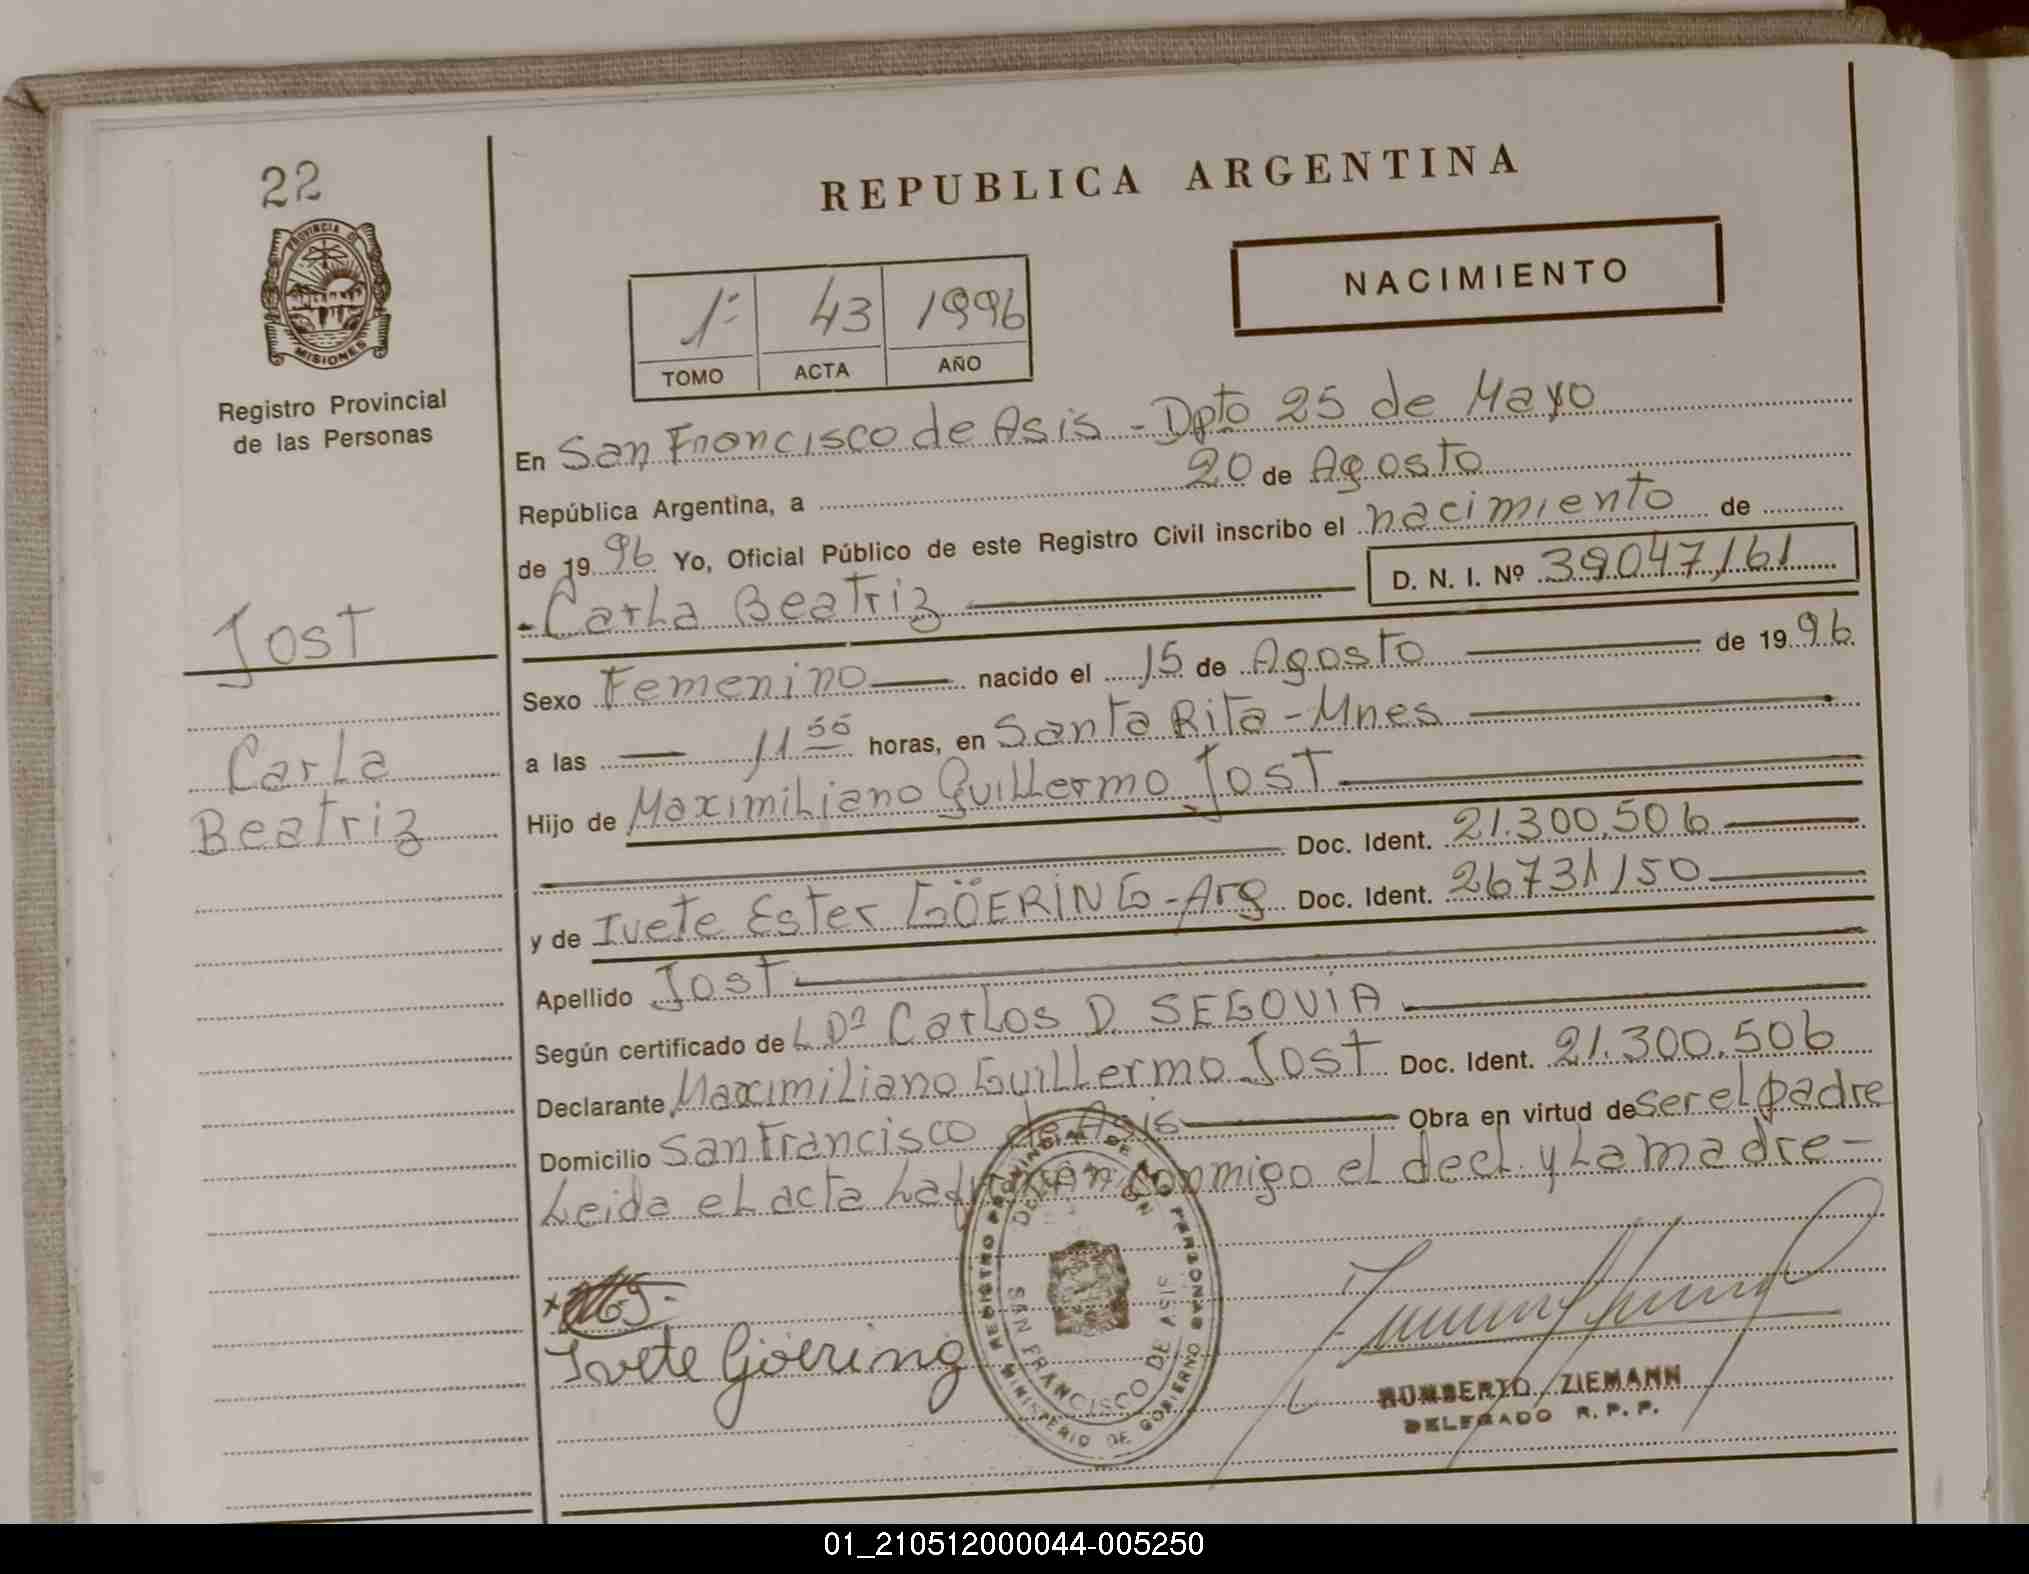 22
PROVINCIA DE
MISIONES
Registro Provincial
de las Personas
Jost
Carla
Beatriz
REPUBLICA ARGENTINA
NACIMIENTO
1º 43 1996
TOMO ACTA AÑO
En San Francisco de Asis - Dpto 25 de Mayo
República Argentina, a 20 de Agosto
de 1996 Yo, Oficial Público de este Registro Civil inscribo el nacimiento de
- Carla Beatriz D. N. I. Nº 39047161
Sexo Femenino nacido el 15 de Agosto de 1996.
a las 11 55 horas, en Santa Rita - Mnes
Hijo de Maximiliano Guillermo Jost
Doc. Ident. 21.300.506
y de Ivete Ester GÖERING - Arg Doc. Ident. 26731150
Apellido Jost
Según certificado de Carlos D. SEGOVIA
Declarante Maximiliano Guillermo Jost Doc. Ident. 21.300.506
Domicilio San Francisco de Asis Obra en virtud de ser el padre
Leida el acta la firman conmigo el decl. y la madre -
Ivete Göering
REGISTRO PROVINCIAL DE PERSONAS
DELEGACION
SAN FRANCISCO DE ASIS
MINISTERIO DE GOBIERNO
HUMBERTO ZIEMANN
DELEGADO R. P. P.
01_210512000044-005250